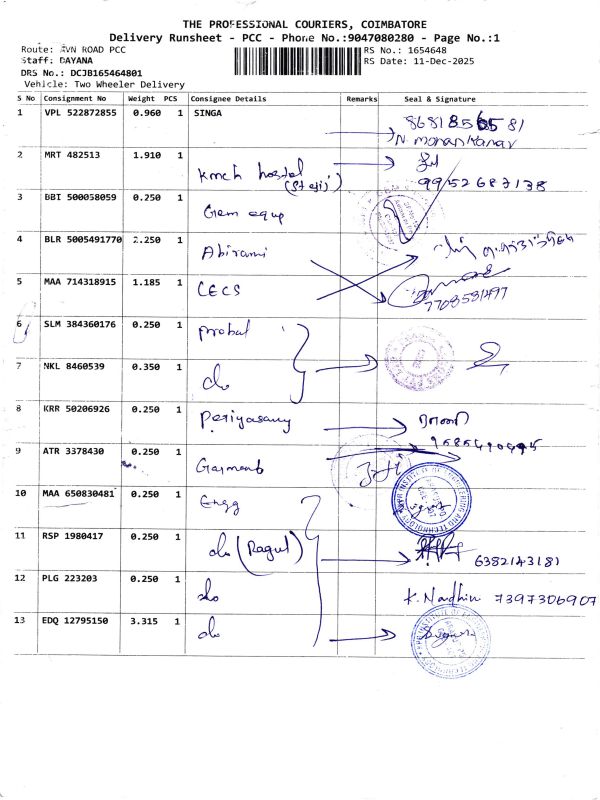 THE PROFESSIONAL COURIERS, COIMBATORE
Delivery Runsheet - PCC - Phone No.:9047080280 - Page No.:1
Route: AVN ROAD PCC
Staff: DAYANA
DRS No.: DCJB165464801
Vehicle: Two Wheeler Delivery
RS No.: 1654648
RS Date: 11-Dec-2025
S No Consignment No Weight PCS Consignee Details Remarks Seal & Signature
1 VPL 522872855 0.960 1 SINGA
N Mohan Kumar
2 MRT 482513 1.910 1 kmch hostel
9952687138
3 BBI 500058059 0.250 1 Gem equp
4 BLR 5005491770 2.250 1 Abirami
5 MAA 714318915 1.185 1 CECS
7708531497
6 SLM 384360176 0.250 1 probal
7 NKL 8460539 0.350 1 do
8 KRR 50206926 0.250 1 Periyasamy ராணி
9 ATR 3378430 0.250 1 Garments
10 MAA 650830481 0.250 1 Engg
11 RSP 1980417 0.250 1 do (Ragul) 6382143181
12 PLG 223203 0.250 1 do K. Nadhin 7397306907
13 EDQ 12795150 3.315 1 do